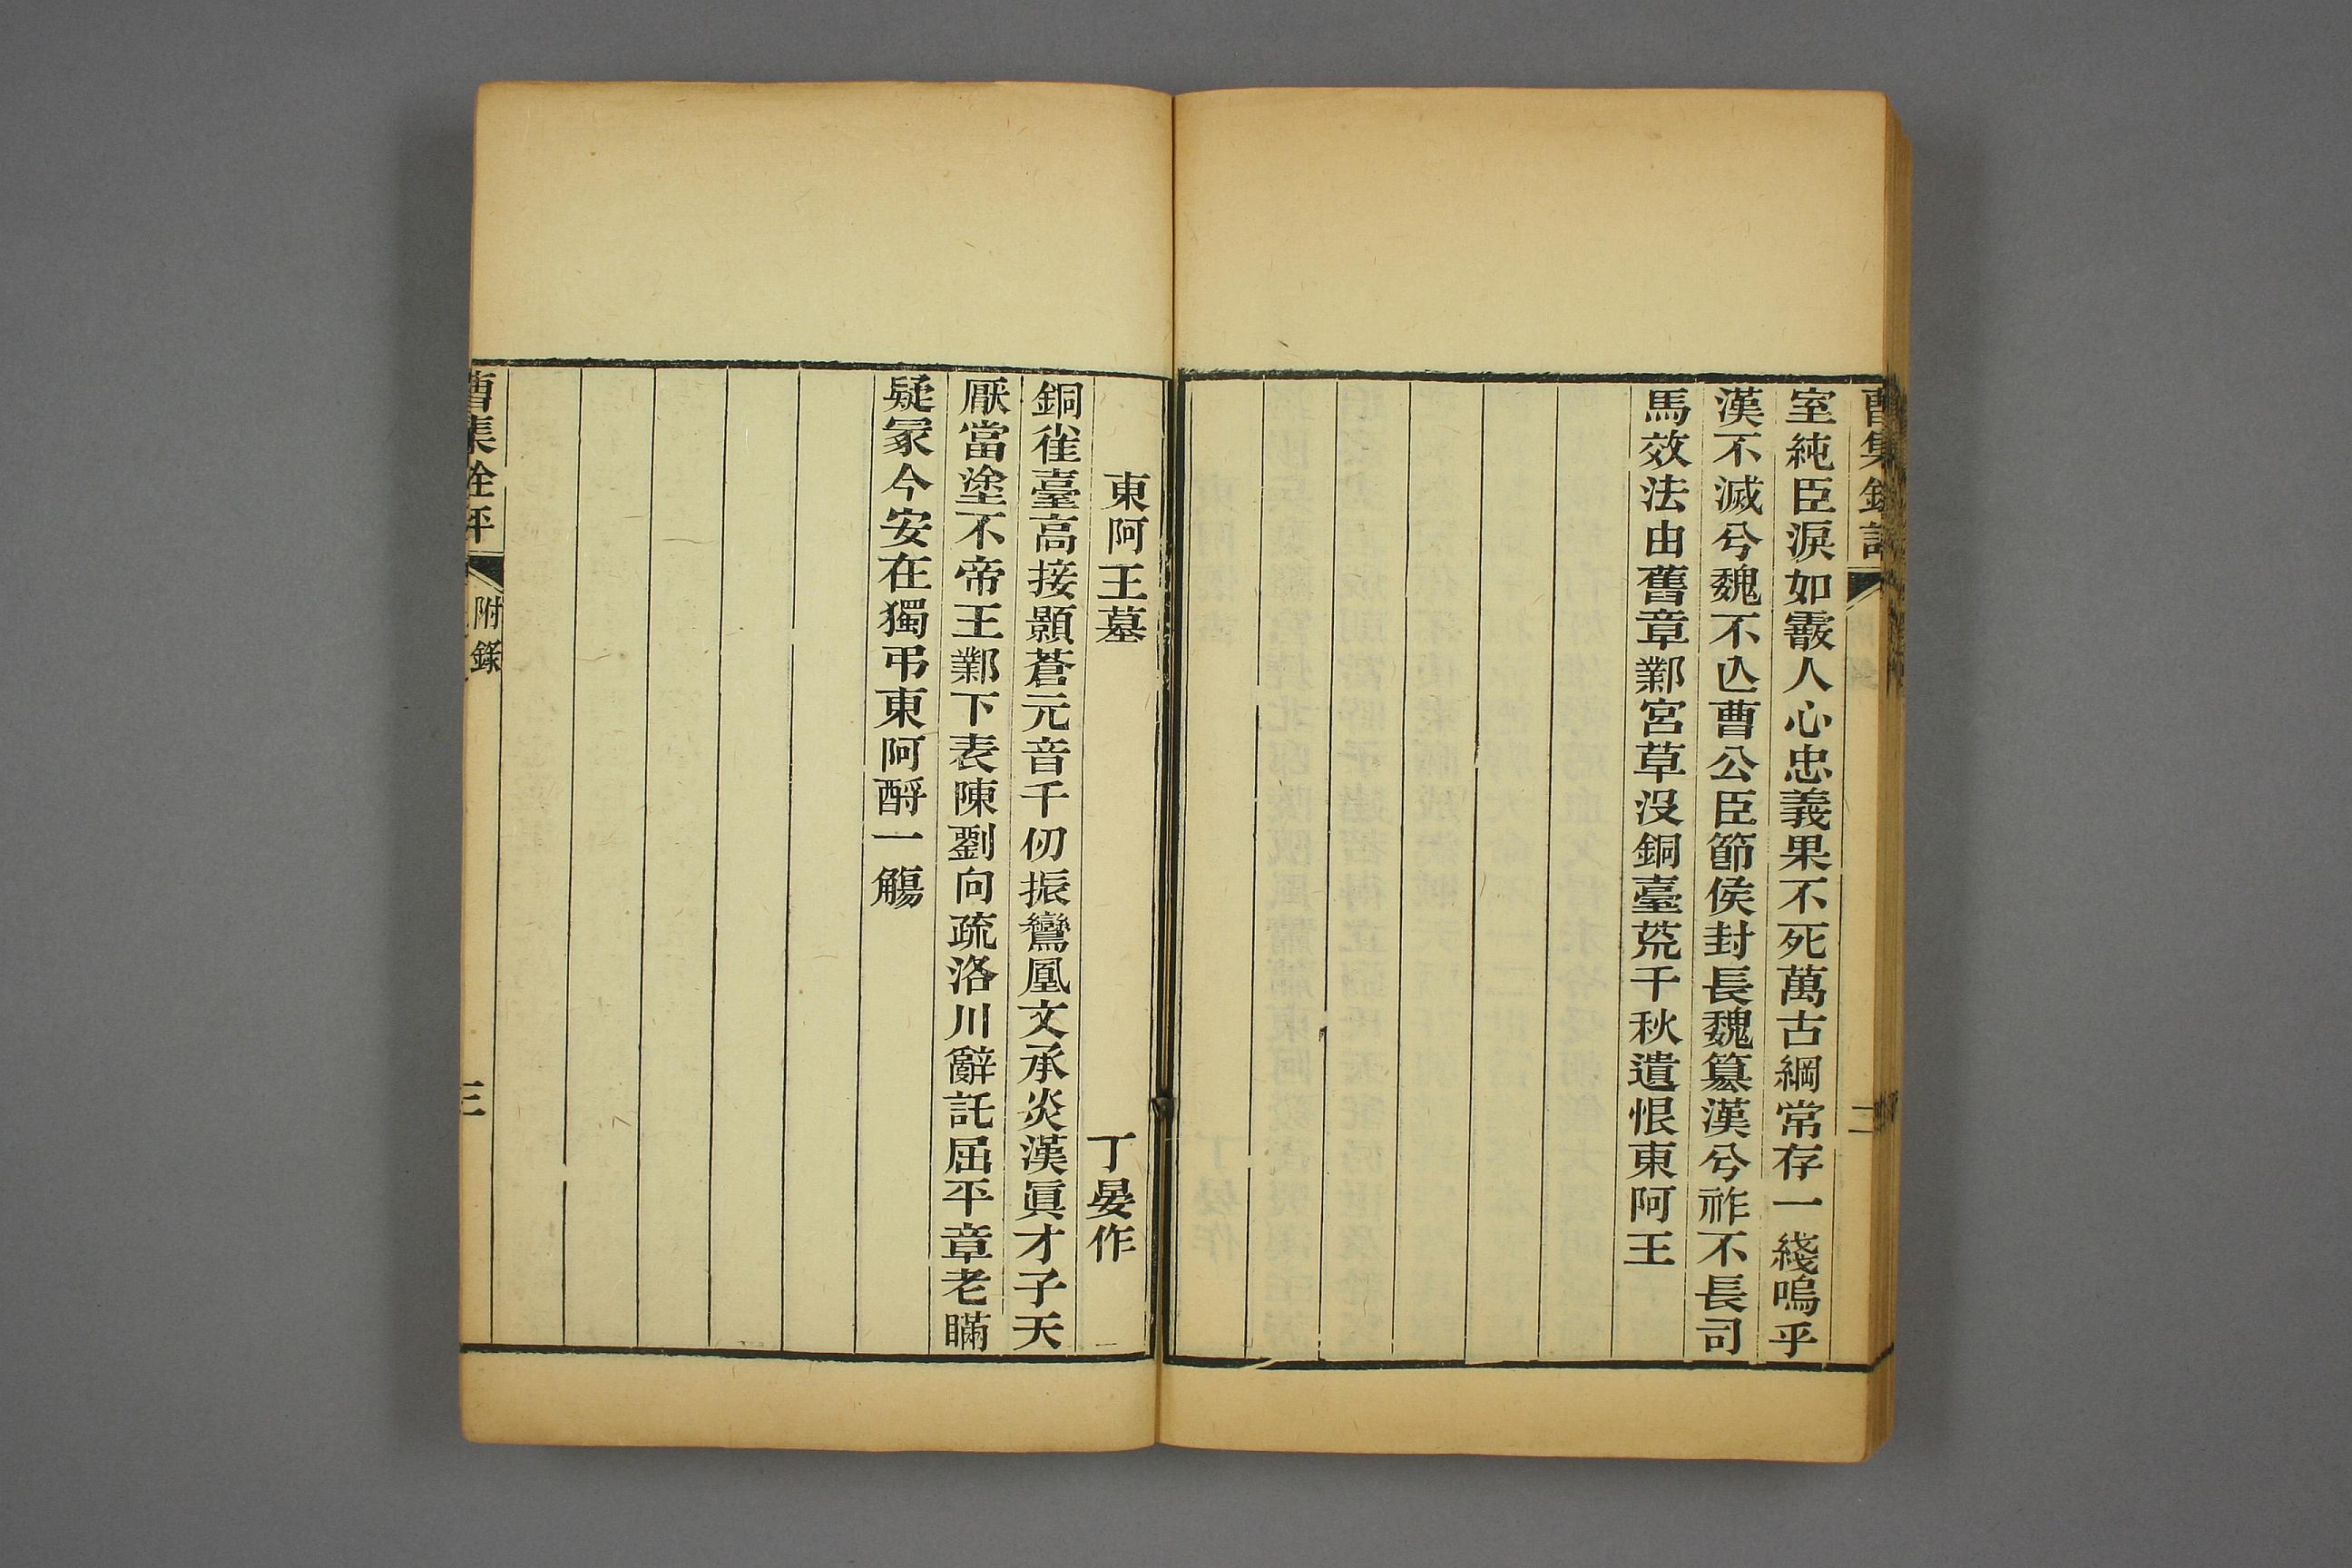 室純臣淚如霰人心忠義果不死萬古綱常存一綫嗚乎
漢不滅兮魏不亾曹公臣節侯封長魏簒漢兮祚不長司
馬效法由舊章鄴宮草没銅臺荒千秋遺恨東阿王
二
東阿王墓
丁晏作
銅雀臺高接顥蒼元音千仞振鸞凰文承炎漢眞才子天
厭當塗不帝王鄴下表陳劉向疏洛川辭託屈平章老瞞
疑冢今安在獨弔東阿酹一觴
附錄
三